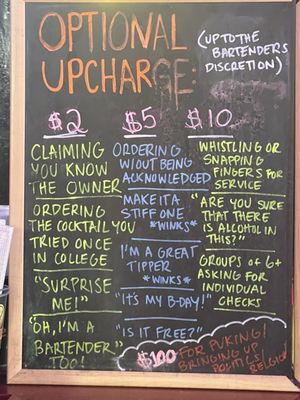 OPTIONAL
UPCHARGE:
(UP TO THE
BARTENDERS
DISCRETION)
$2
CLAIMING
YOU KNOW
THE OWNER
ORDERING
THE COCKTAIL YOU
TRIED ONCE
IN COLLEGE
"SURPRISE
ME!"
"OH, I'M A
BARTENDER
TOO!"
$5
ORDERING
W/OUT BEING
ACKNOWLEDGED
MAKE IT A
STIFF ONE
*WINKS*
I'M A GREAT
TIPPER
*WINKS*
"IT'S MY B-DAY!"
"IS IT FREE?"
$10
WHISTLING OR
SNAPPING
FINGERS FOR
SERVICE
"ARE YOU SURE
THAT THERE
IS ALCOHOL IN
THIS?"
GROUPS OF 6+
ASKING FOR
INDIVIDUAL
CHECKS
$100 FOR PUKING!
BRINGING UP
POLITICS/RELIGION